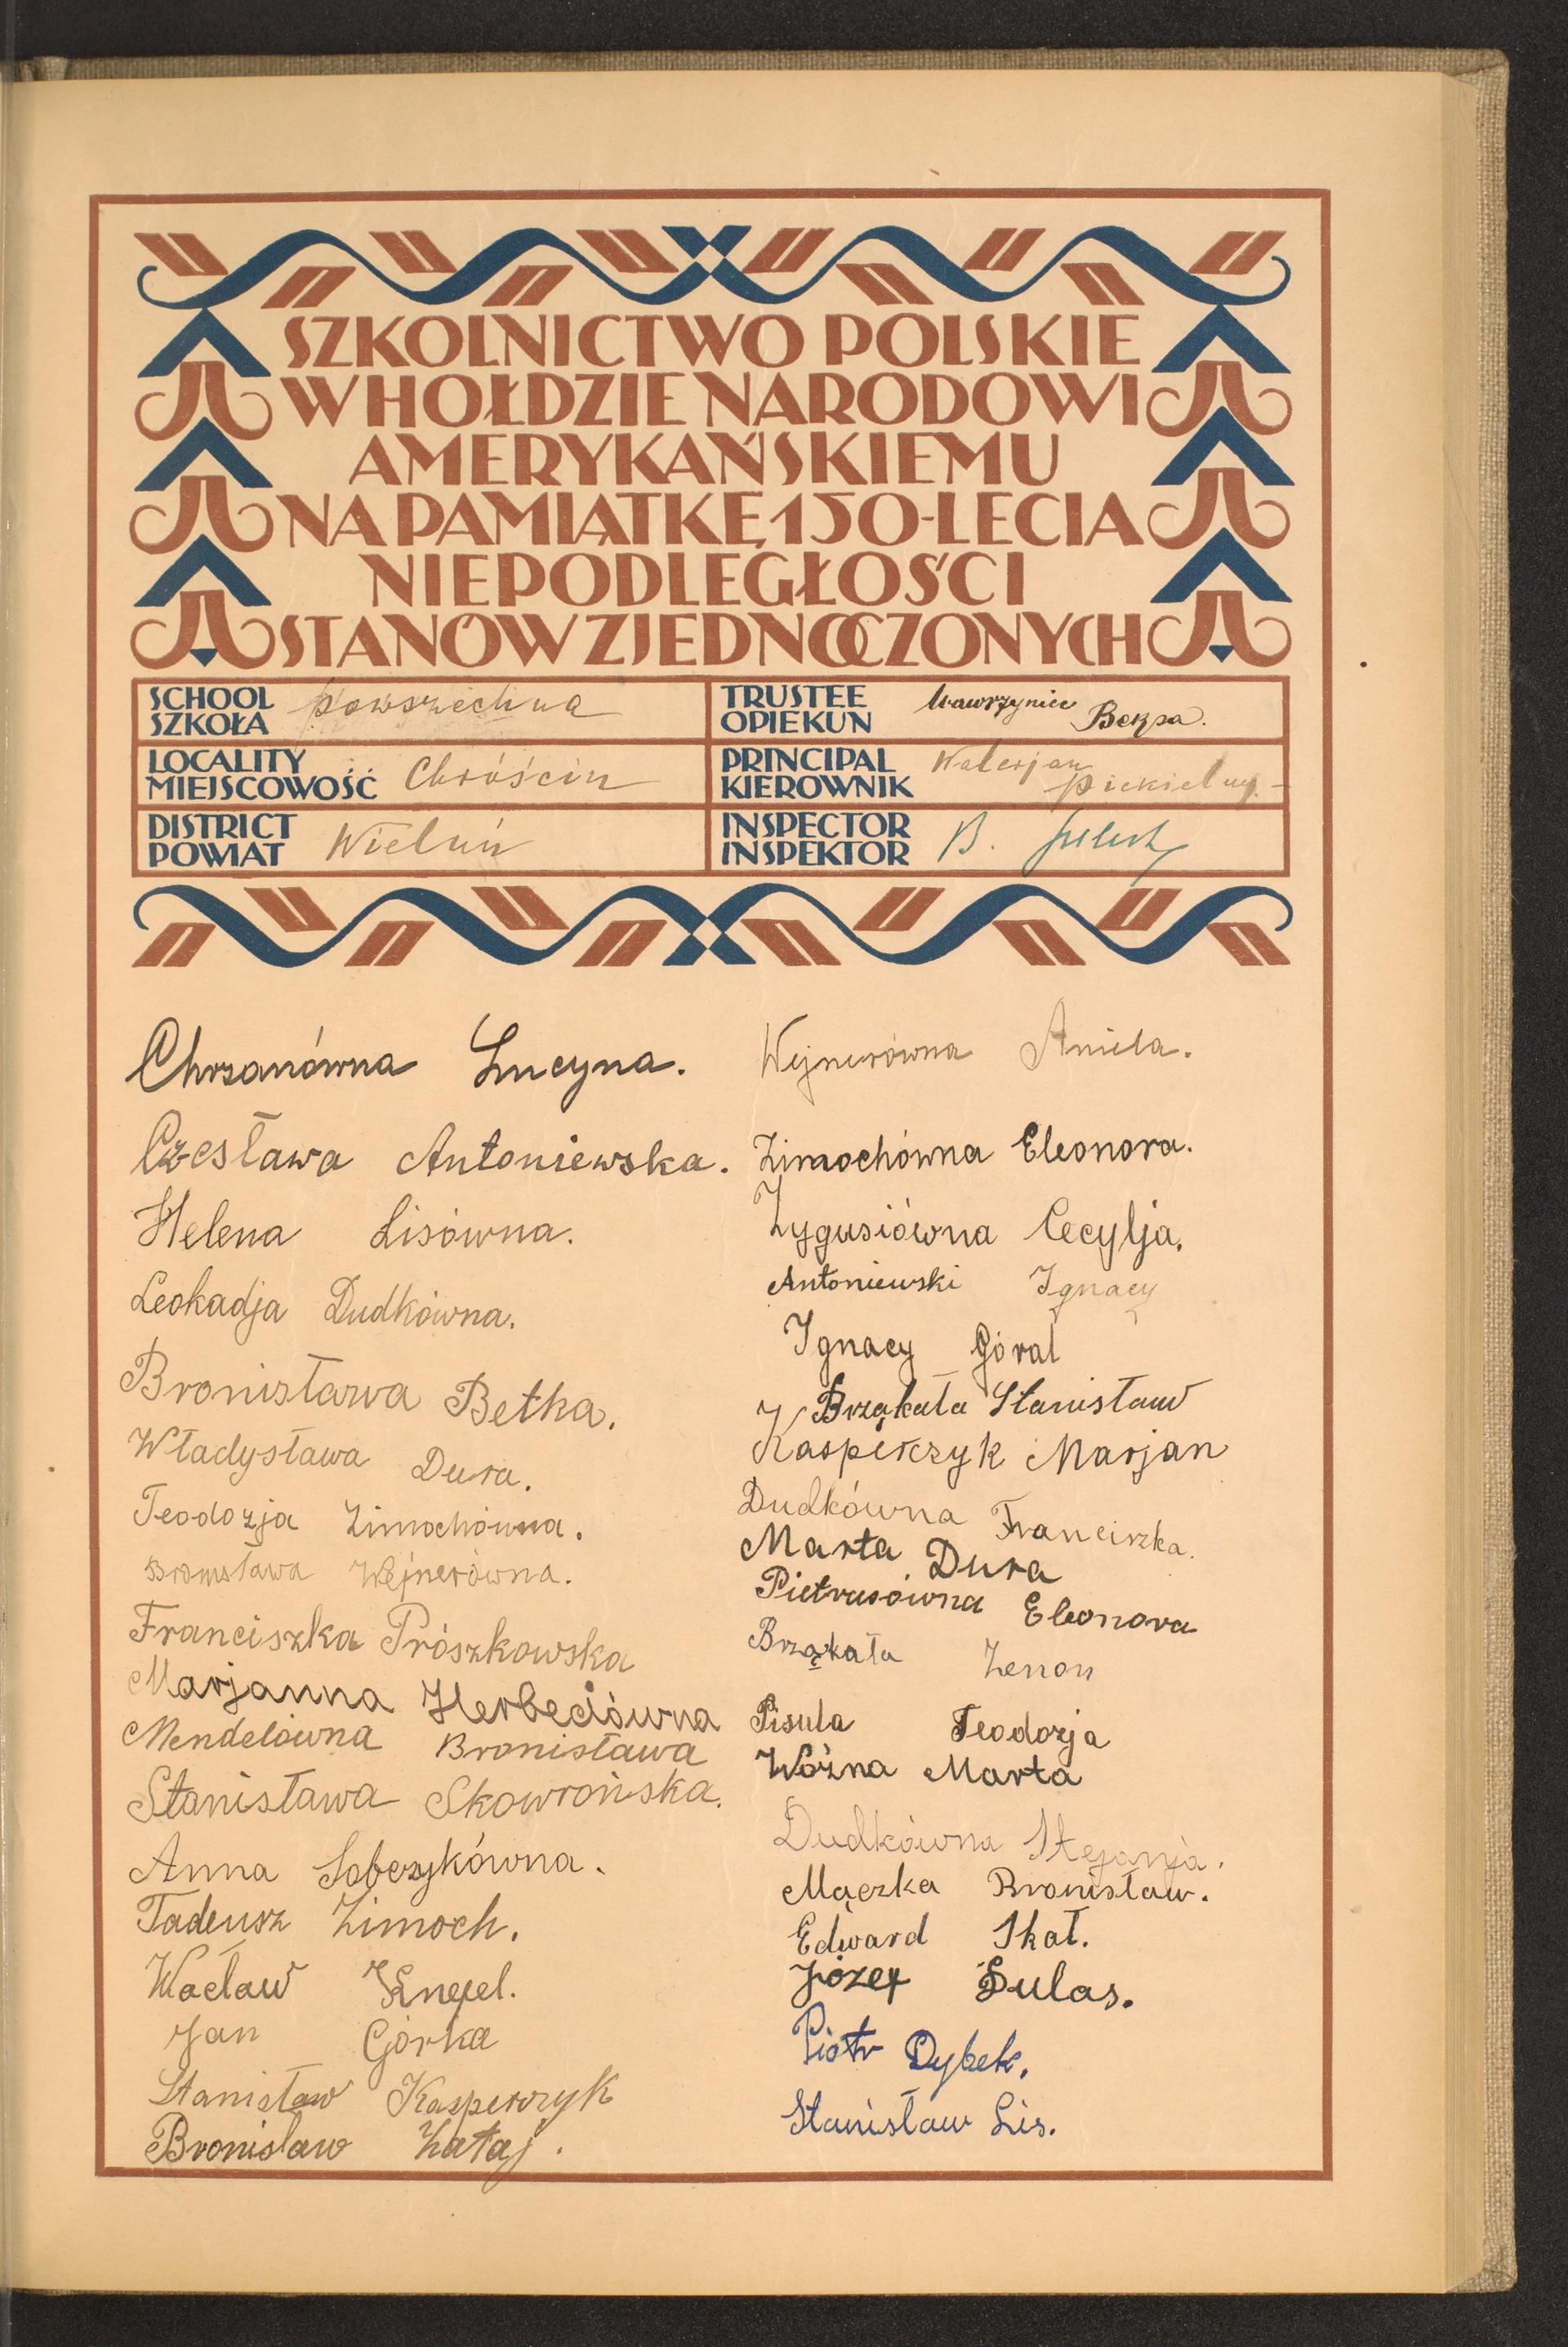 SZKOLNICTWO POLSKIE
W HOŁDZIE NARODOWI
AMERYKAŃSKIEMU
NA PAMIĄTKĘ 150-LECIA
NIEPODLEGŁOŚCI
STANÓW ZJEDNOCZONYCH
SCHOOL
SZKOŁA powszechna
LOCALITY
MIEJSCOWOŚĆ Chróścin
DISTRICT
POWIAT Wieluń
TRUSTEE
OPIEKUN Wawrzyniec
Bezpa.
PRINCIPAL
KIEROWNIK Walerjan
Piekielny.-
INSPECTOR
INSPEKTOR B.
Chrzanówna Lucyna.
Czesława Antoniewska.
Helena Lisówna.
Leokadja Dudkówna.
Bronisława Betka.
Władysława Dura.
Teodozja Zimochówna.
Bronisława Wejnerówna.
Franciszka Prószkowska
Marjanna Herbeciówna
Mendelówna Bronisława
Stanisława Skowrońska.
Anna Sobczykówna.
Tadeusz Zimoch.
Wacław Knefel.
Jan Górka
Stanisław Kasperczyk
Bronisław Zataj.
Wejnerówna Aniela.
Zimochówna Eleonora.
Zygusiówna Cecylja.
Antoniewski Ignacy
Ignacy Góral
Brząkała Stanisław
Kasperczyk Marjan
Dudkówna Franciszka.
Marta Dura
Pietrasówna Eleonora
Brząkała Zenon
Pisula Teodozja
Woźna Marta
Dudkówna Stefanja.
Mączka Bronisław.
Edward Skał.
Józef Dulas.
Piotr Dybek.
Stanisław Lis.